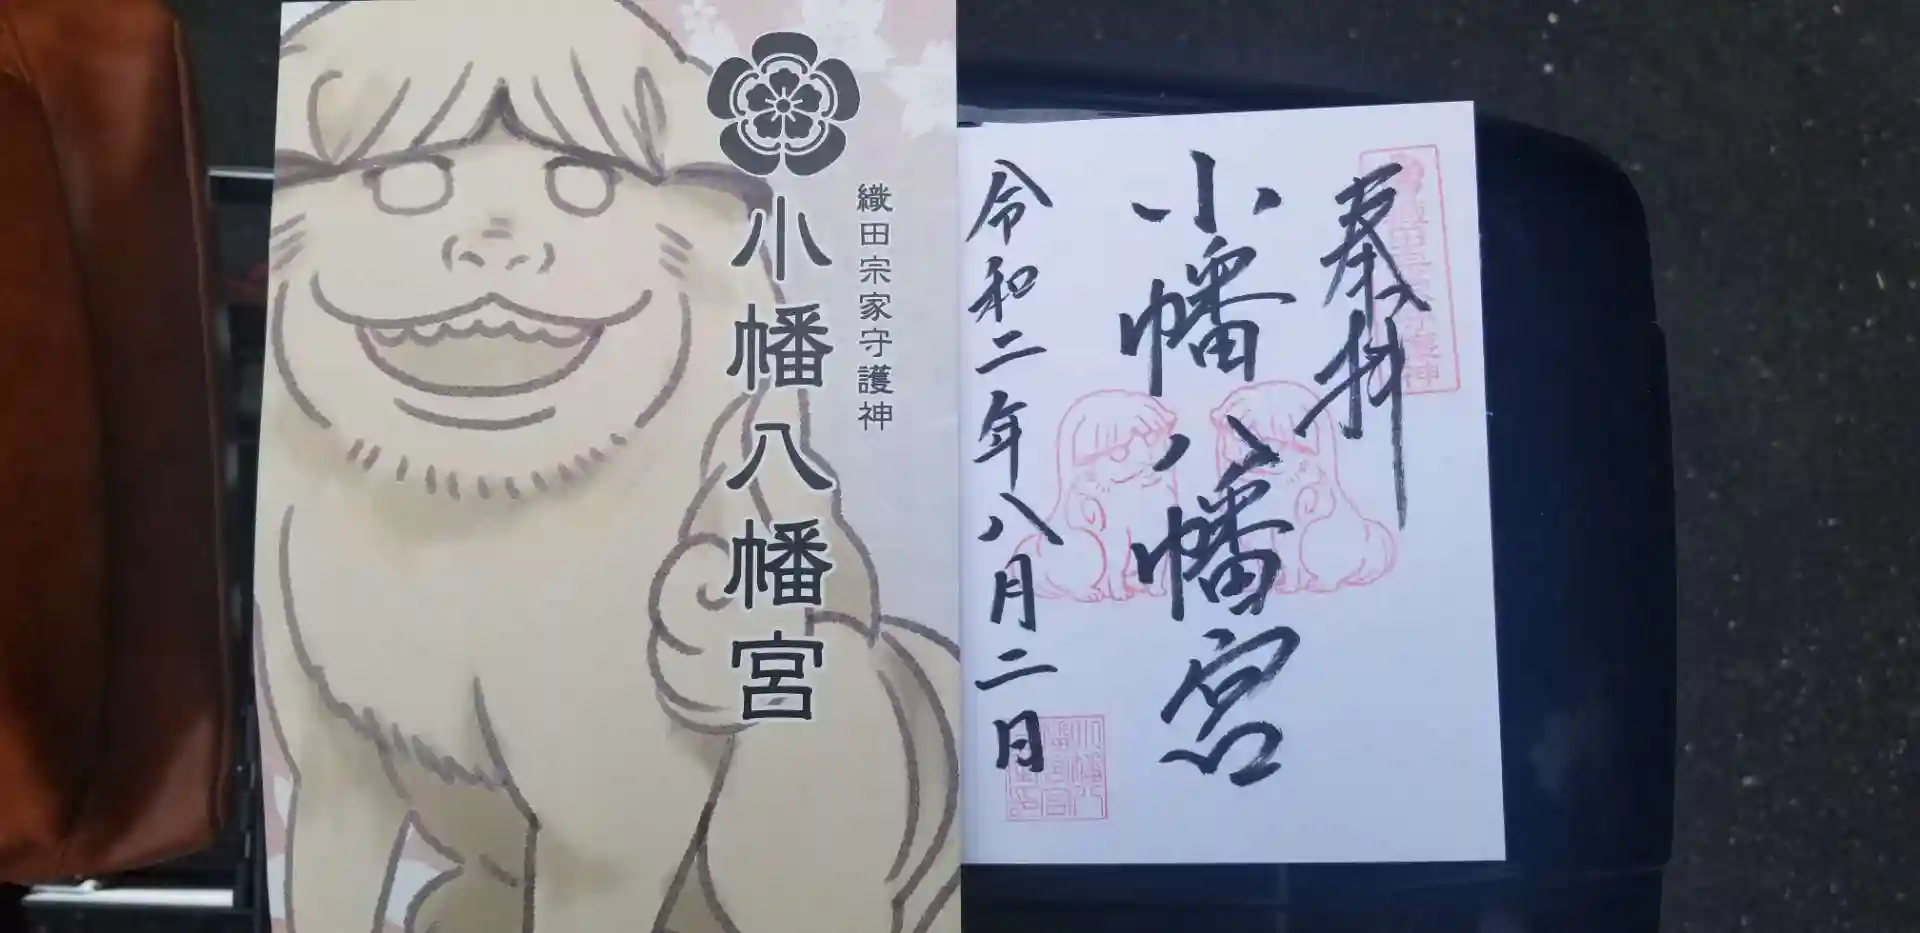 織田宗家守護神
小幡八幡宮
奉拝
織田宗家守護神
小幡八幡宮
令和二年八月二日